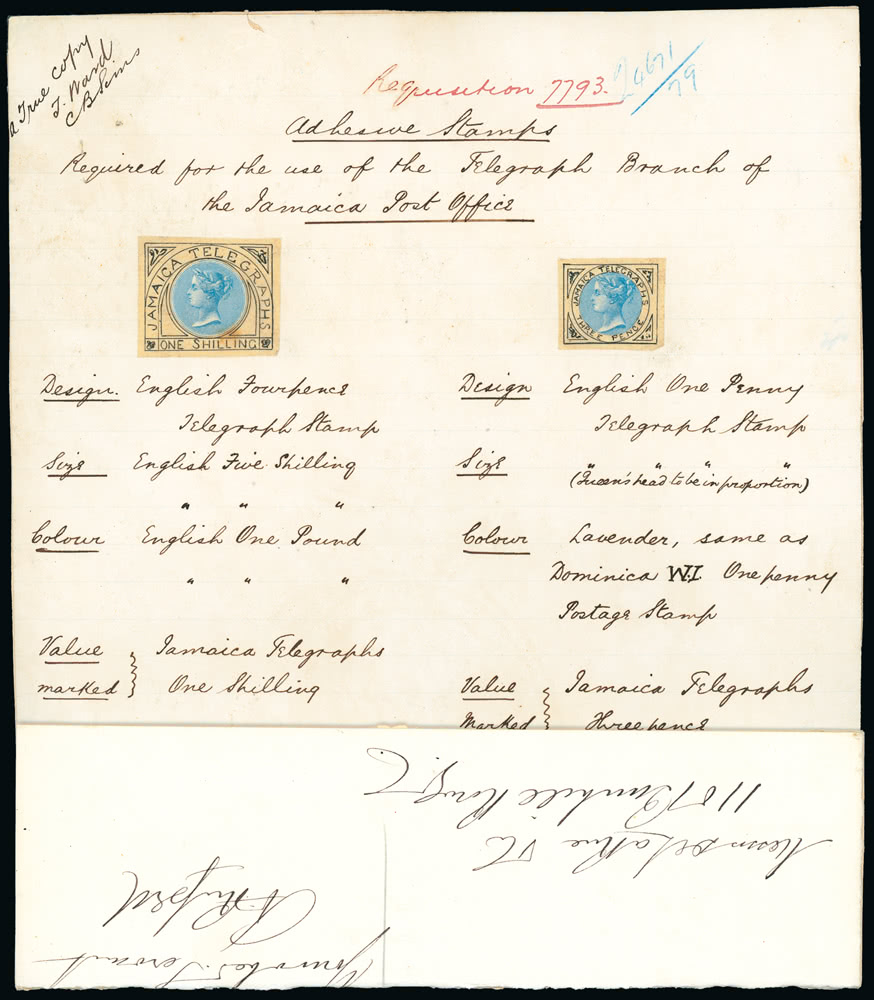 a True copy
J. Ward
Requisition 7793.
24671/79
Adhesive Stamps
Required for the use of the Telegraph Branch of
the Jamaica Post Office
JAMAICA TELEGRAPHS
ONE SHILLING
Design. English Fourpence
Telegraph Stamp
Size English Five Shilling
" " "
Colour English One Pound
" " "
Value } Jamaica Telegraphs
marked } One Shilling
JAMAICA TELEGRAPHS
THREE PENCE
Design English One Penny
Telegraph Stamp
Size " " " "
(Queen's head to be in proportion)
Colour Lavender, same as
Dominica W.I. One penny
Postage Stamp
Value } Jamaica Telegraphs
Marked } Threepence
Your obt. Servant
Messrs De La Rue &C
110 Bunhill Row
E.C.